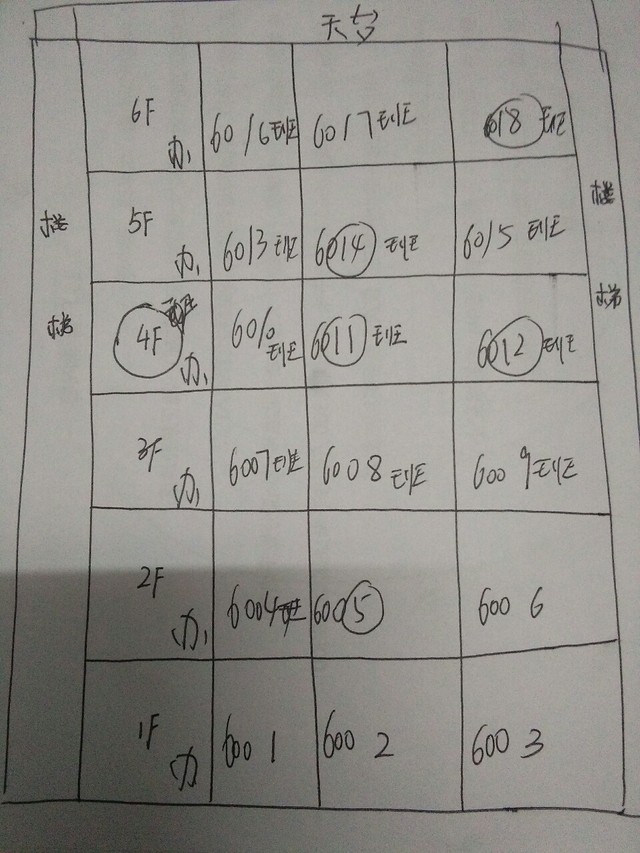 天台
6F 办 6016班 6017班 6018班
5F 办 6013班 6014班 6015班
4F 办 6010班 6011班 6012班
3F 办 6007班 6008班 6009班
2F 办 6004班 6005 6006
1F 办 6001 6002 6003
楼梯
楼梯